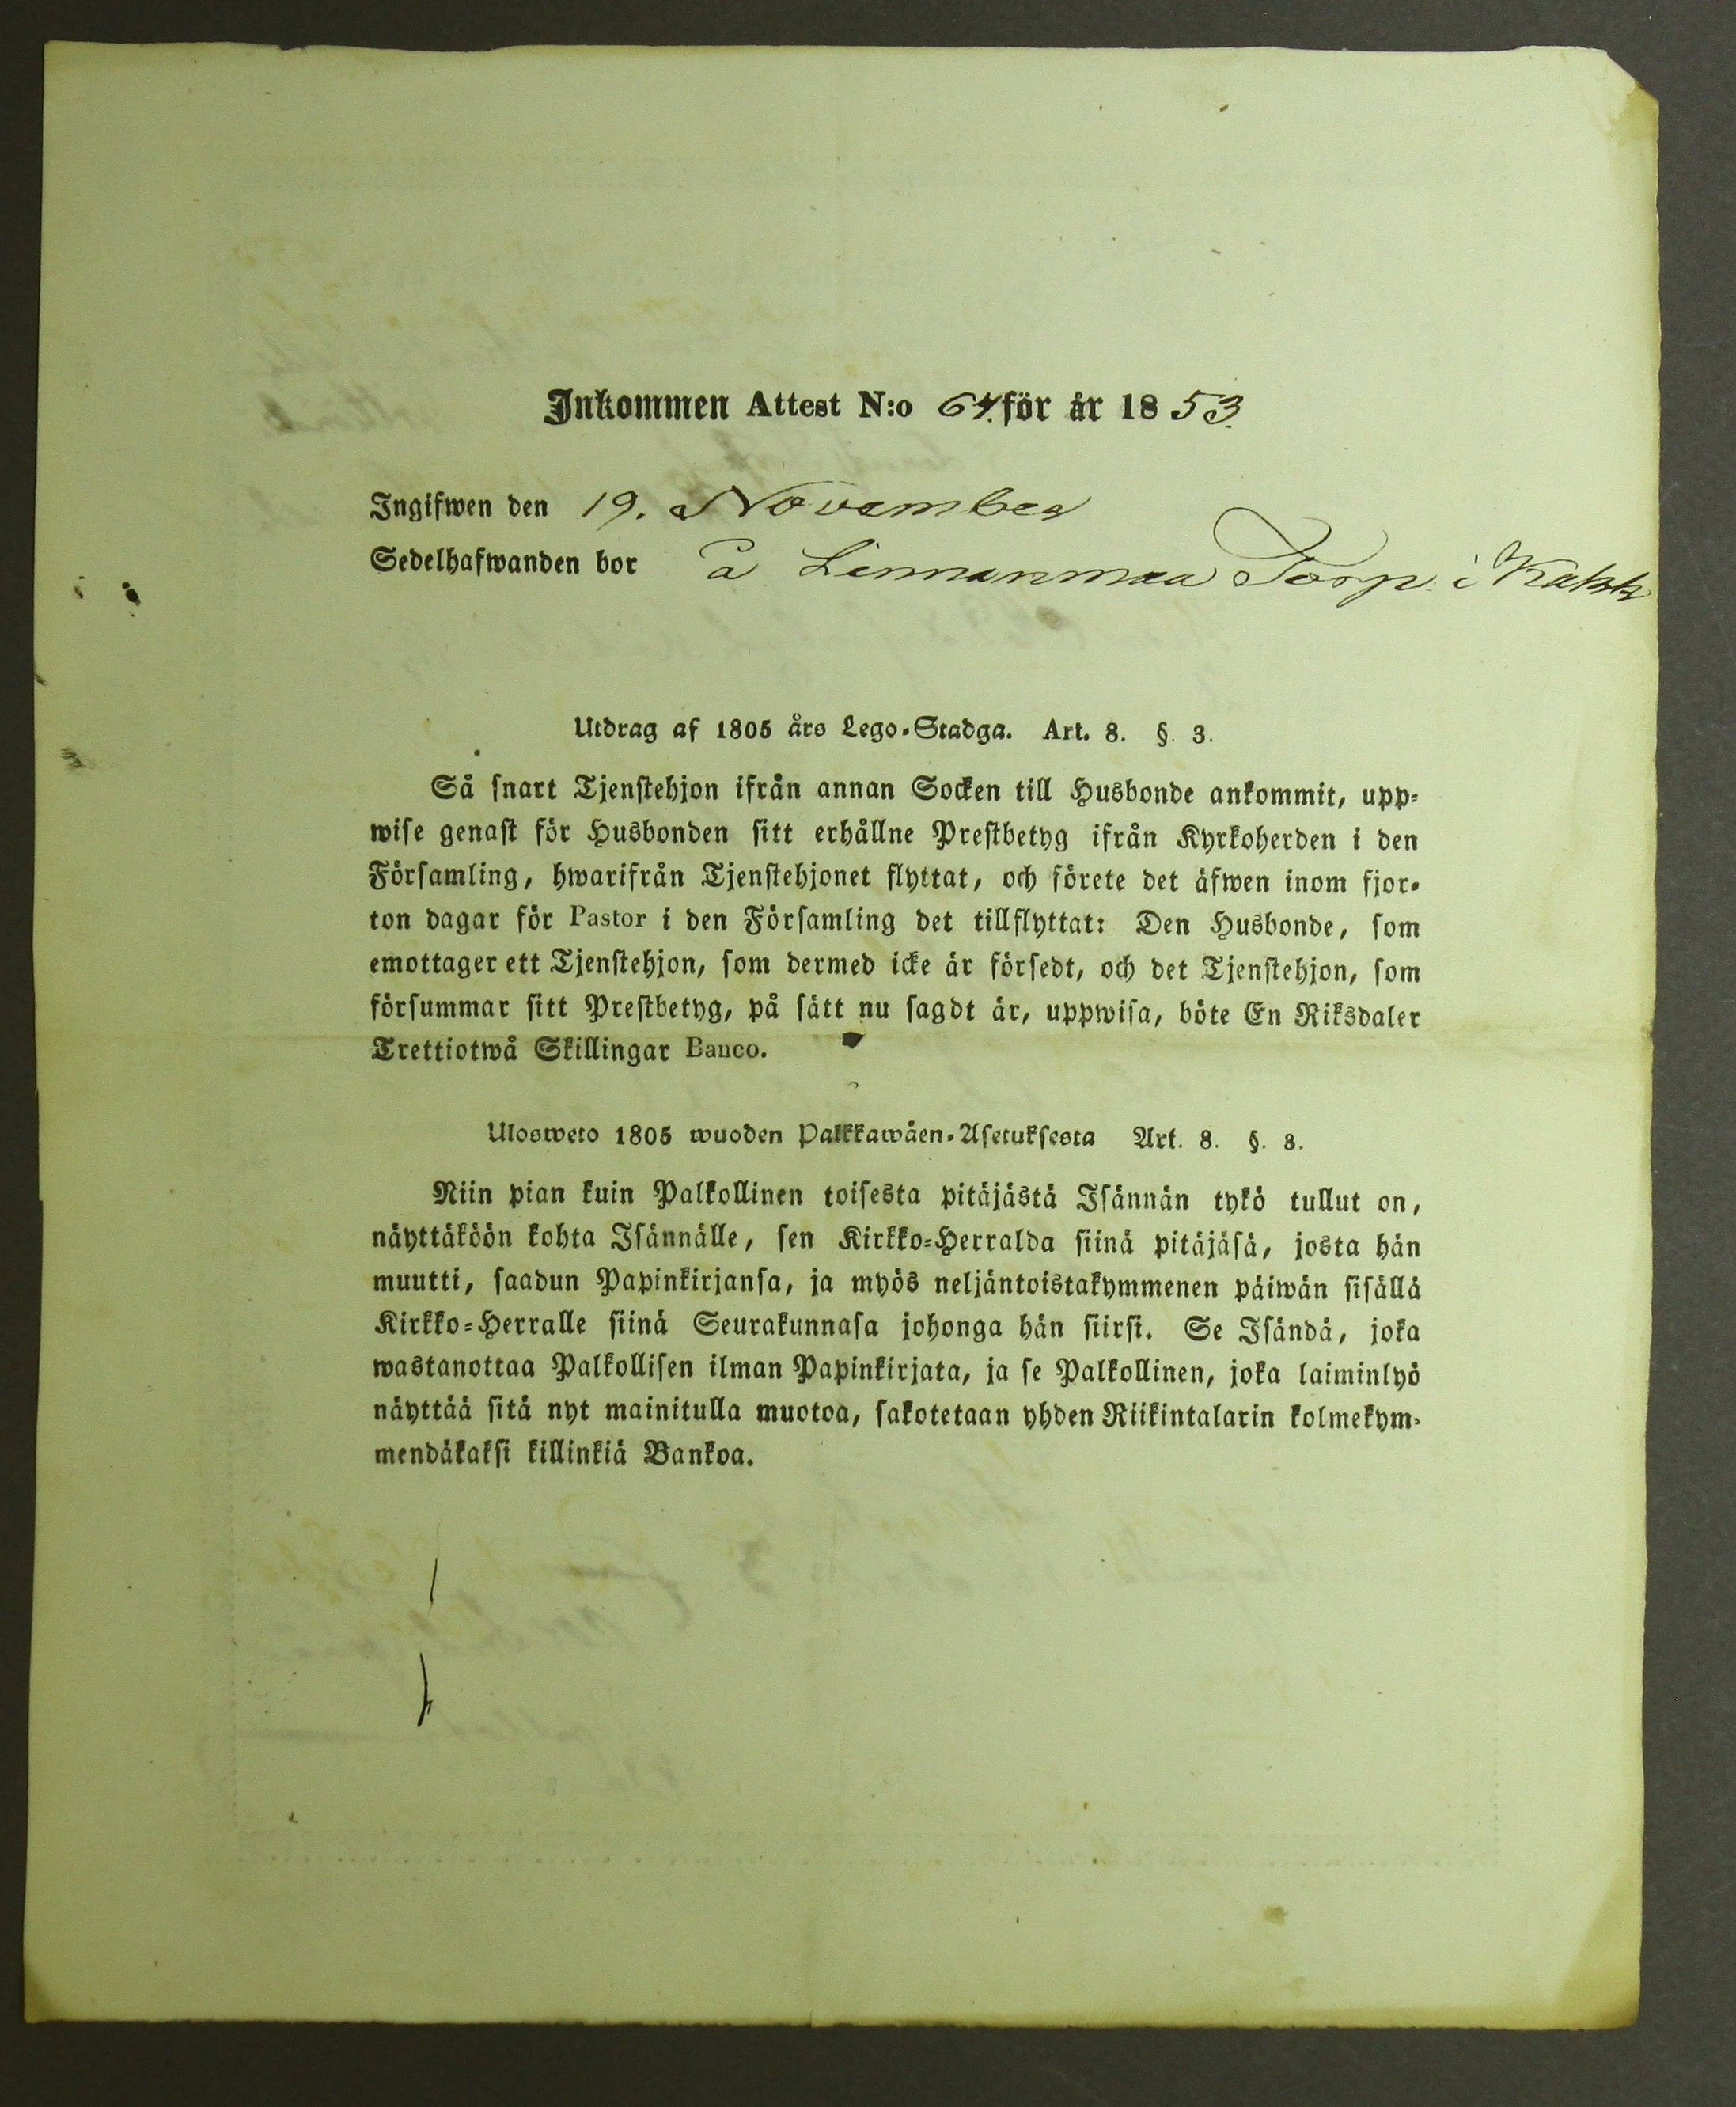 Inkommen Attest N:o 64. för år 1853.
Ingifwen den 19. November
Sedelhafwanden bor å Linnanmaa Torp i Kakk
Utdrag af 1805 års Lego-Stadga. Art. 8. §. 3.
Så snart Tjenstehjon ifrån annan Socken till Husbonde ankommit, upp-
wise genast för Husbonden sitt erhållne Prestbetyg ifrån Kyrkoherden i den
Församling, hwarifrån Tjenstehjonet flyttat, och förete det äfwen inom fjor-
ton dagar för Pastor i den Församling det tillflyttat: Den Husbonde, som
emottager ett Tjenstehjon, som dermed icke är försedt, och det Tjenstehjon, som
försummar sitt Prestbetyg, på sätt nu sagdt är, uppwisa, böte En Riksdaler
Trettiotwå Skillingar Banco.
Ulosweto 1805 wuoden Palkkawäen-Asetuksesta Art. 8. §. 3.
Niin pian kuin Palkollinen toisesta pitäjästä Isännän tykö tullut on,
näyttäköön kohta Isännälle, sen Kirkko-Herralda siinä pitäjäsä, josta hän
muutti, saadun Papinkirjansa, ja myös neljäntoistakymmenen päiwän sisällä
Kirkko-Herralle siinä Seurakunnasa johonga hän siirsi. Se Isändä, joka
wastanottaa Palkollisen ilman Papinkirjata, ja se Palkollinen, joka laiminlyö
näyttää sitä nyt mainitulla muotoa, sakotetaan yhden Riikintalarin kolmekym-
mendäkaksi killinkiä Bankoa.